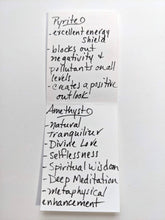 Pyrite
- excellent energy
shield
- blocks out
negativity &
pollutants on all
levels.
- creates a positive
outlook!
Amethyst
- Natural
Tranquilizer
- Divide Love
- Selflessness
- Spiritual Wisdom
- Deep Meditation
- metaphysical
enhancement